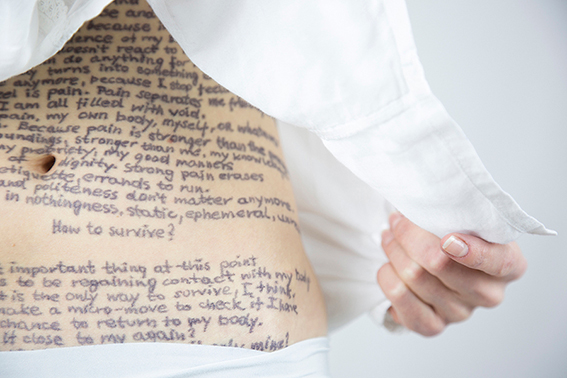 me and
because i
ience of my
doesn't react to
do anything for
turns into something
anymore, because I stop
el is pain. Pain separates me from
I am all filled with void,
pain, my own body, myself, or whatever
Because pain is stronger than the
oundings, stronger than me, my knowl
my good manners
of dignity. Strong pain erases
etiquette, errands to run.
and politeness don't matter anymore
in nothingness, static, ephemeral,
How to survive?
important thing at this point
s to be regaining contact with my body
t is the only way to survive, I think.
make a micro-move to check if I have
chance to return to my body.
it close to my again?
mine!